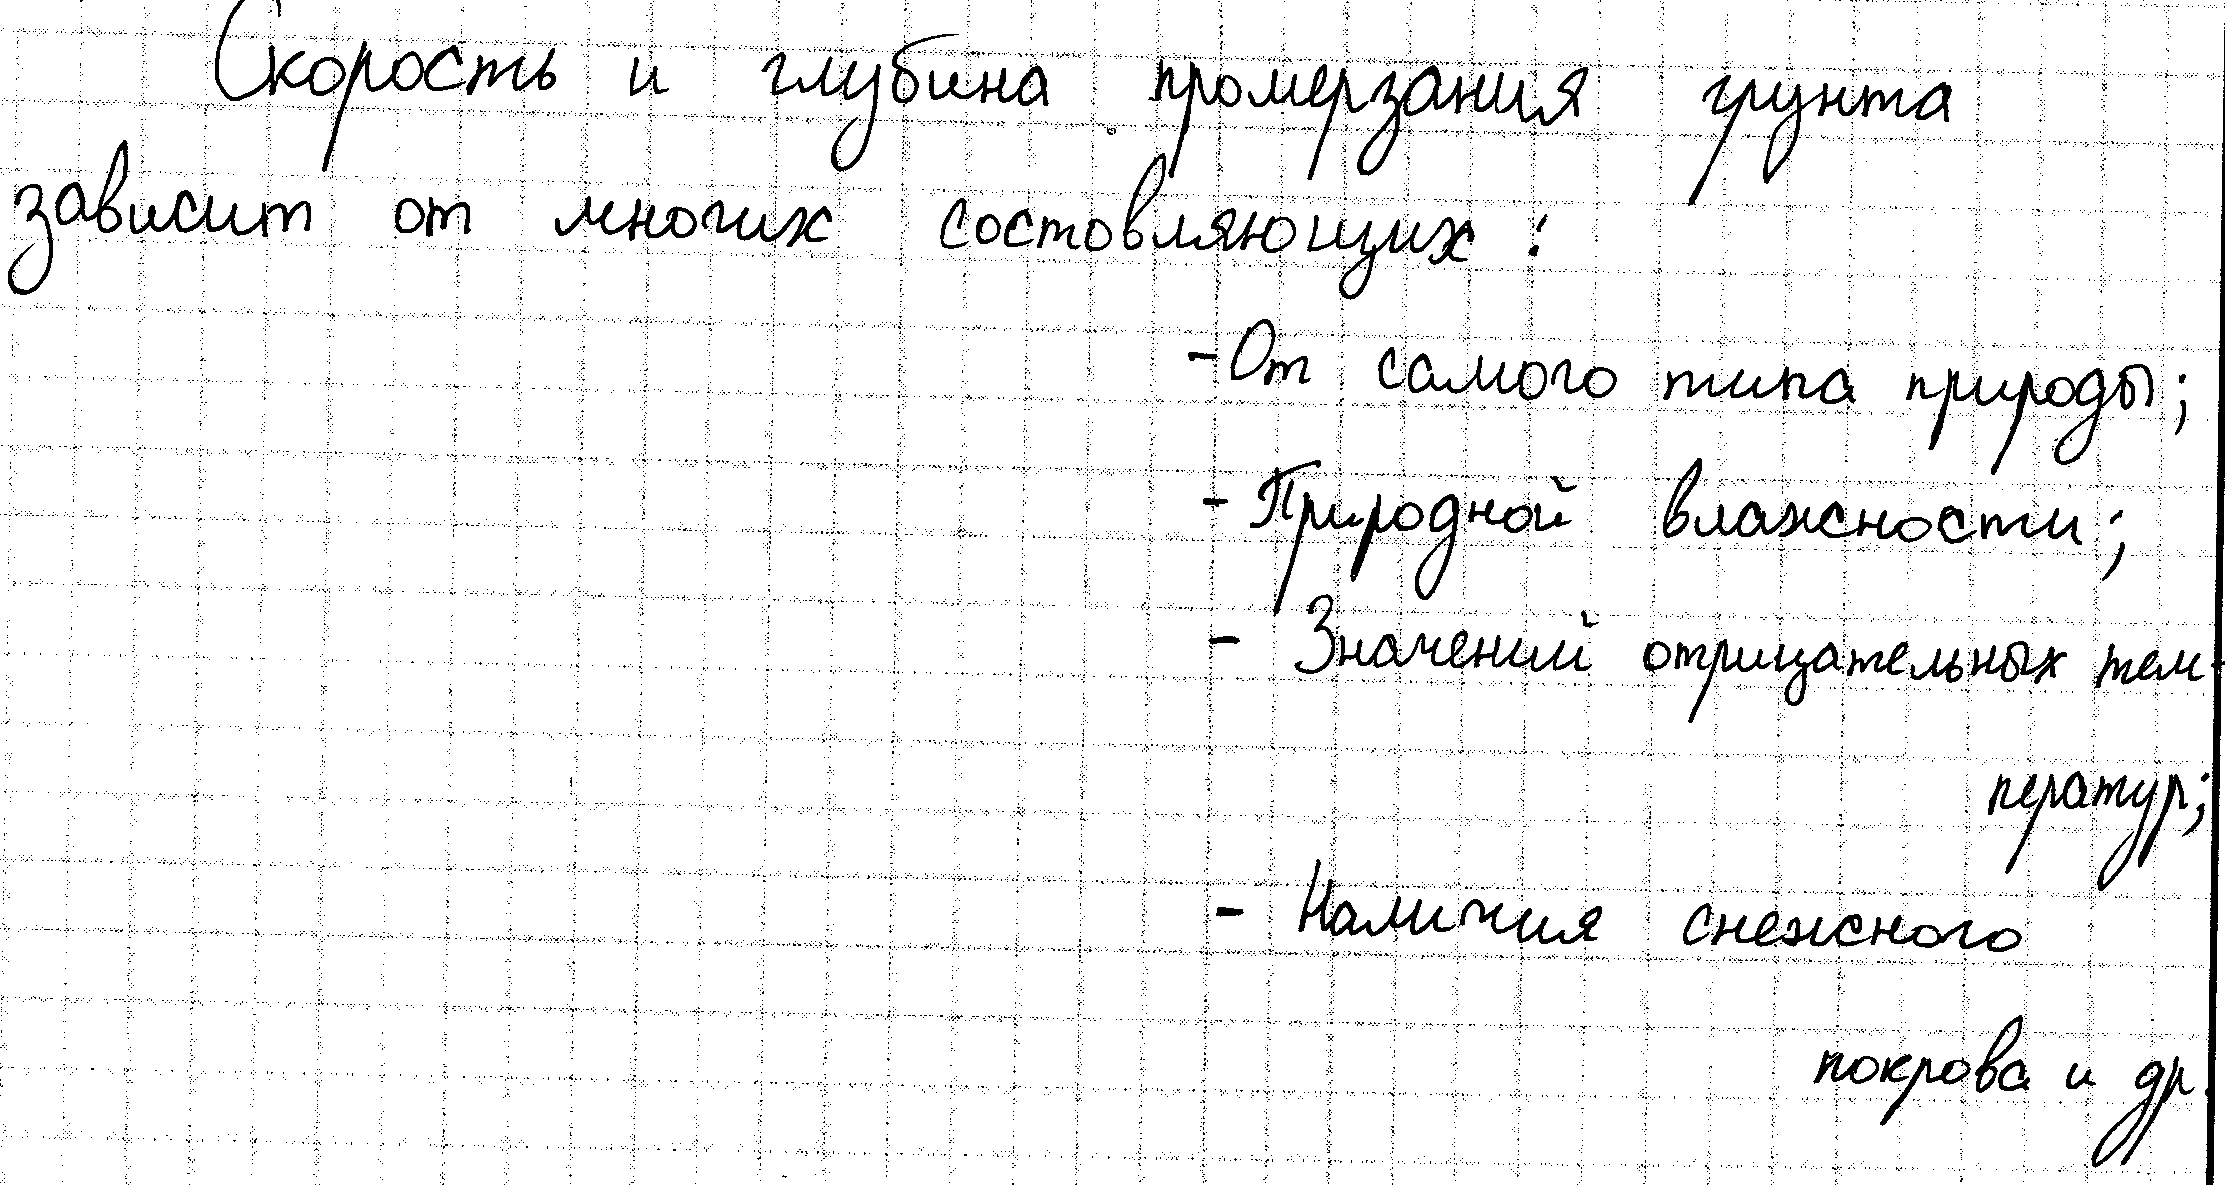 Скорость и глубина промерзания грунта
зависит от многих состовляющих:
- От самого типа природы;
- Природной влажности;
- Значений отрицательных тем-
ператур;
- Наличия снежного
покрова и др.